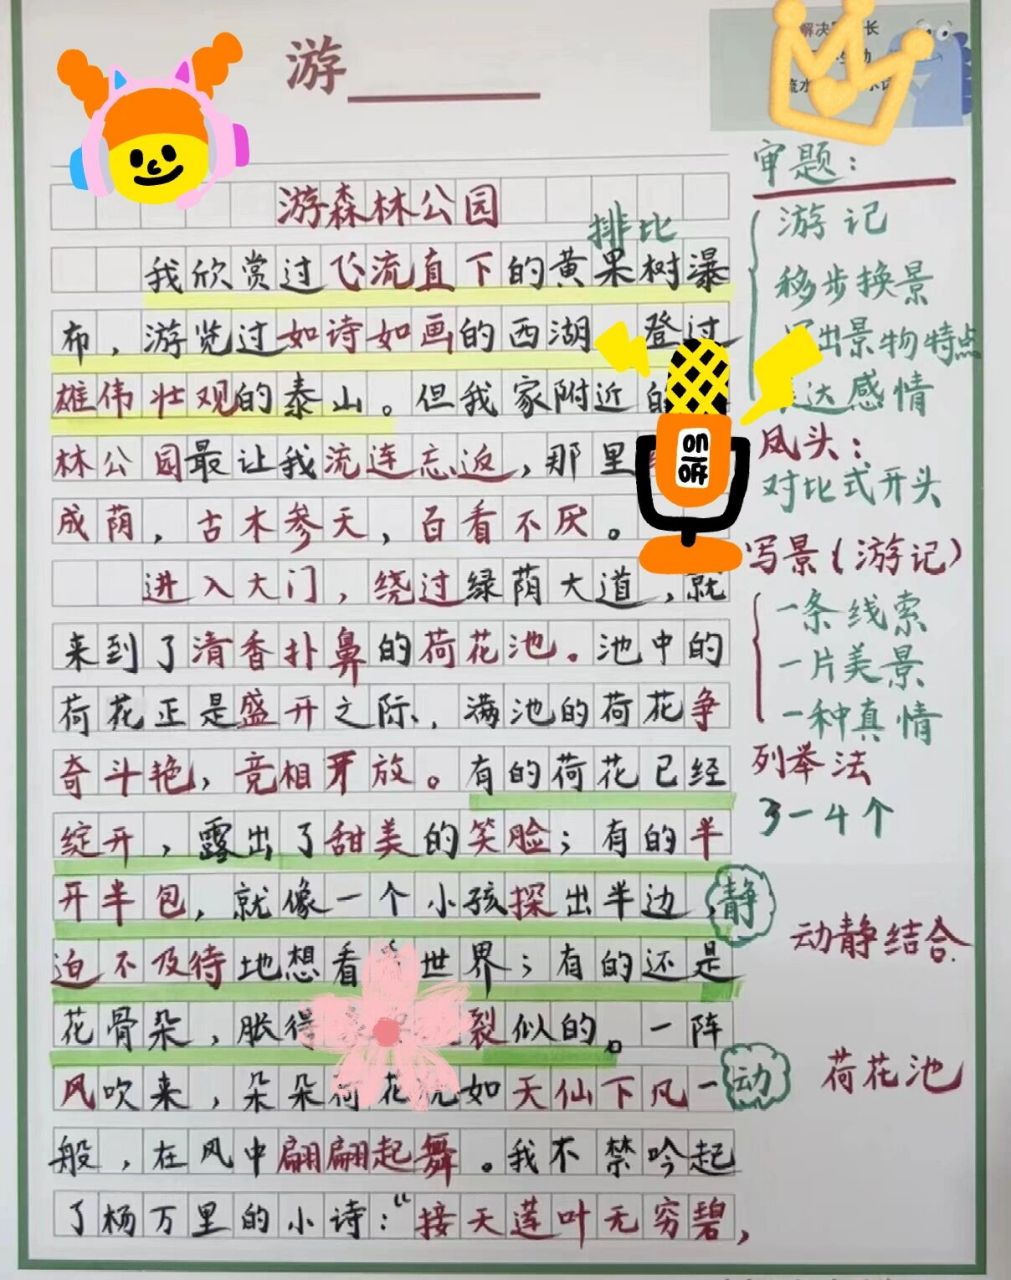 解决 长
游
审题：
游森林公园
排比
游记
我欣赏过飞流直下的黄果树瀑
移步换景
布，游览过如诗如画的西湖 登过
出景物特点
雄伟壮观的泰山。但我家附近
达感情
林公园最让我流连忘返，那里
凤头：
对比式开头
成荫，古木参天，百看不厌。
写景（游记）
进入大门，绕过绿荫大道，就
一条线索
来到了清香扑鼻的荷花池。池中的
一片美景
荷花正是盛开之际、满池的荷花争
一种真情
奇斗艳，竞相开放。有的荷花已经
列举法
3-4个
绽开，露出了甜美的笑脸；有的半
开半包，就像一个小孩探出半边，
静
动静结合
迫不及待地想看 世界；有的还是
花骨朵，胀得 裂似的。一阵
风吹来，朵朵荷花 如天仙下凡一
动
荷花池
般，在风中翩翩起舞。我不禁吟起
了杨万里的小诗：“接天莲叶无穷碧，
on
off